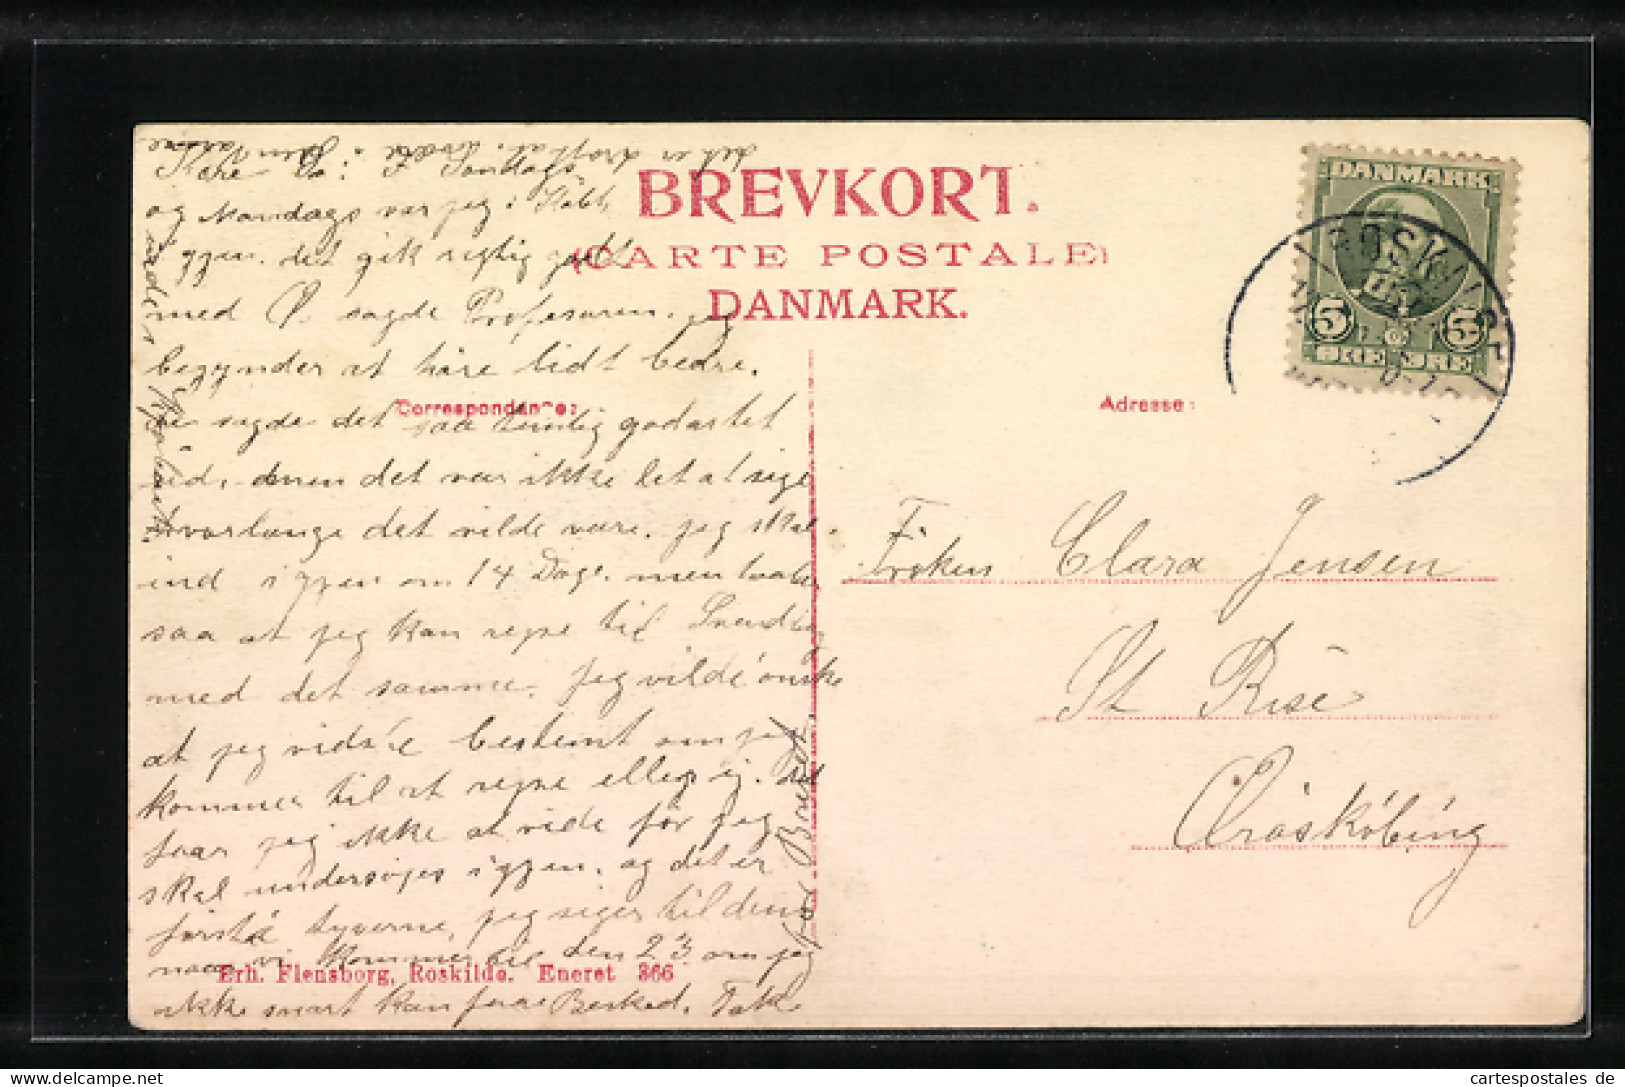 BREVKORT.
(CARTE POSTALE)
DANMARK.
Correspondance:
Adresse:
DANMARK
5 5
ØRE ØRE
ROSKILDE
Kære
og Mandags var jeg i Købh.
igjen. det gik rigtig godt
med sagde Profesoren. jeg
begynder at høre lidt bedre.
sagde det saa temlig godartet
ud, det var ikke let at sige
hvorlænge det vilde vare. jeg skal
ind igjen om 14 Dage. men haaber
saa at jeg kan rejse til Svendborg
med det samme. jeg vilde ønske
at jeg vidste bestemt om jeg
kommer til at rejse eller ej. det
faar jeg ikke at vide før jeg
skal undersøges igjen. og det er
første tyverne, jeg siger til dem
naar vi kommer til den 23 om jeg
ikke snart kan faae Besked. Tak
for Brevet.
det er i den Varme
Frøken Clara Jensen
St Rise
Ærøskøbing
Erh. Flensborg, Roskilde. Eneret 366
cartespostales de